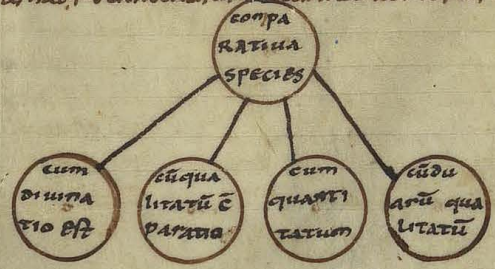 conpa
RATIUA
SPECIES
cum
diuina
tio est
cū qua
litatū c̄
paratio
cum
quanti
tatum
cū du
arū qua
litatū